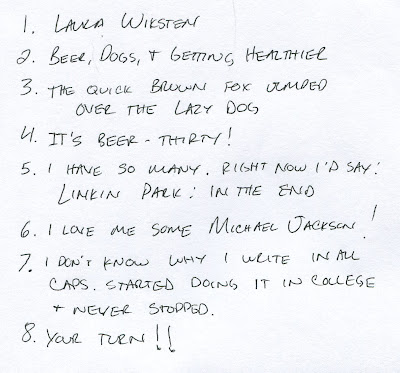 1. LAURA WIKSTEN
2. BEER, DOGS, + GETTING HEALTHIER
3. THE QUICK BROWN FOX JUMPED
OVER THE LAZY DOG
4. IT'S BEER-THIRTY!
5. I HAVE SO MANY. RIGHT NOW I'D SAY:
LINKIN PARK: IN THE END
6. I LOVE ME SOME MICHAEL JACKSON!
7. I DON'T KNOW WHY I WRITE IN ALL
CAPS. STARTED DOING IT IN COLLEGE
+ NEVER STOPPED.
8. YOUR TURN!!